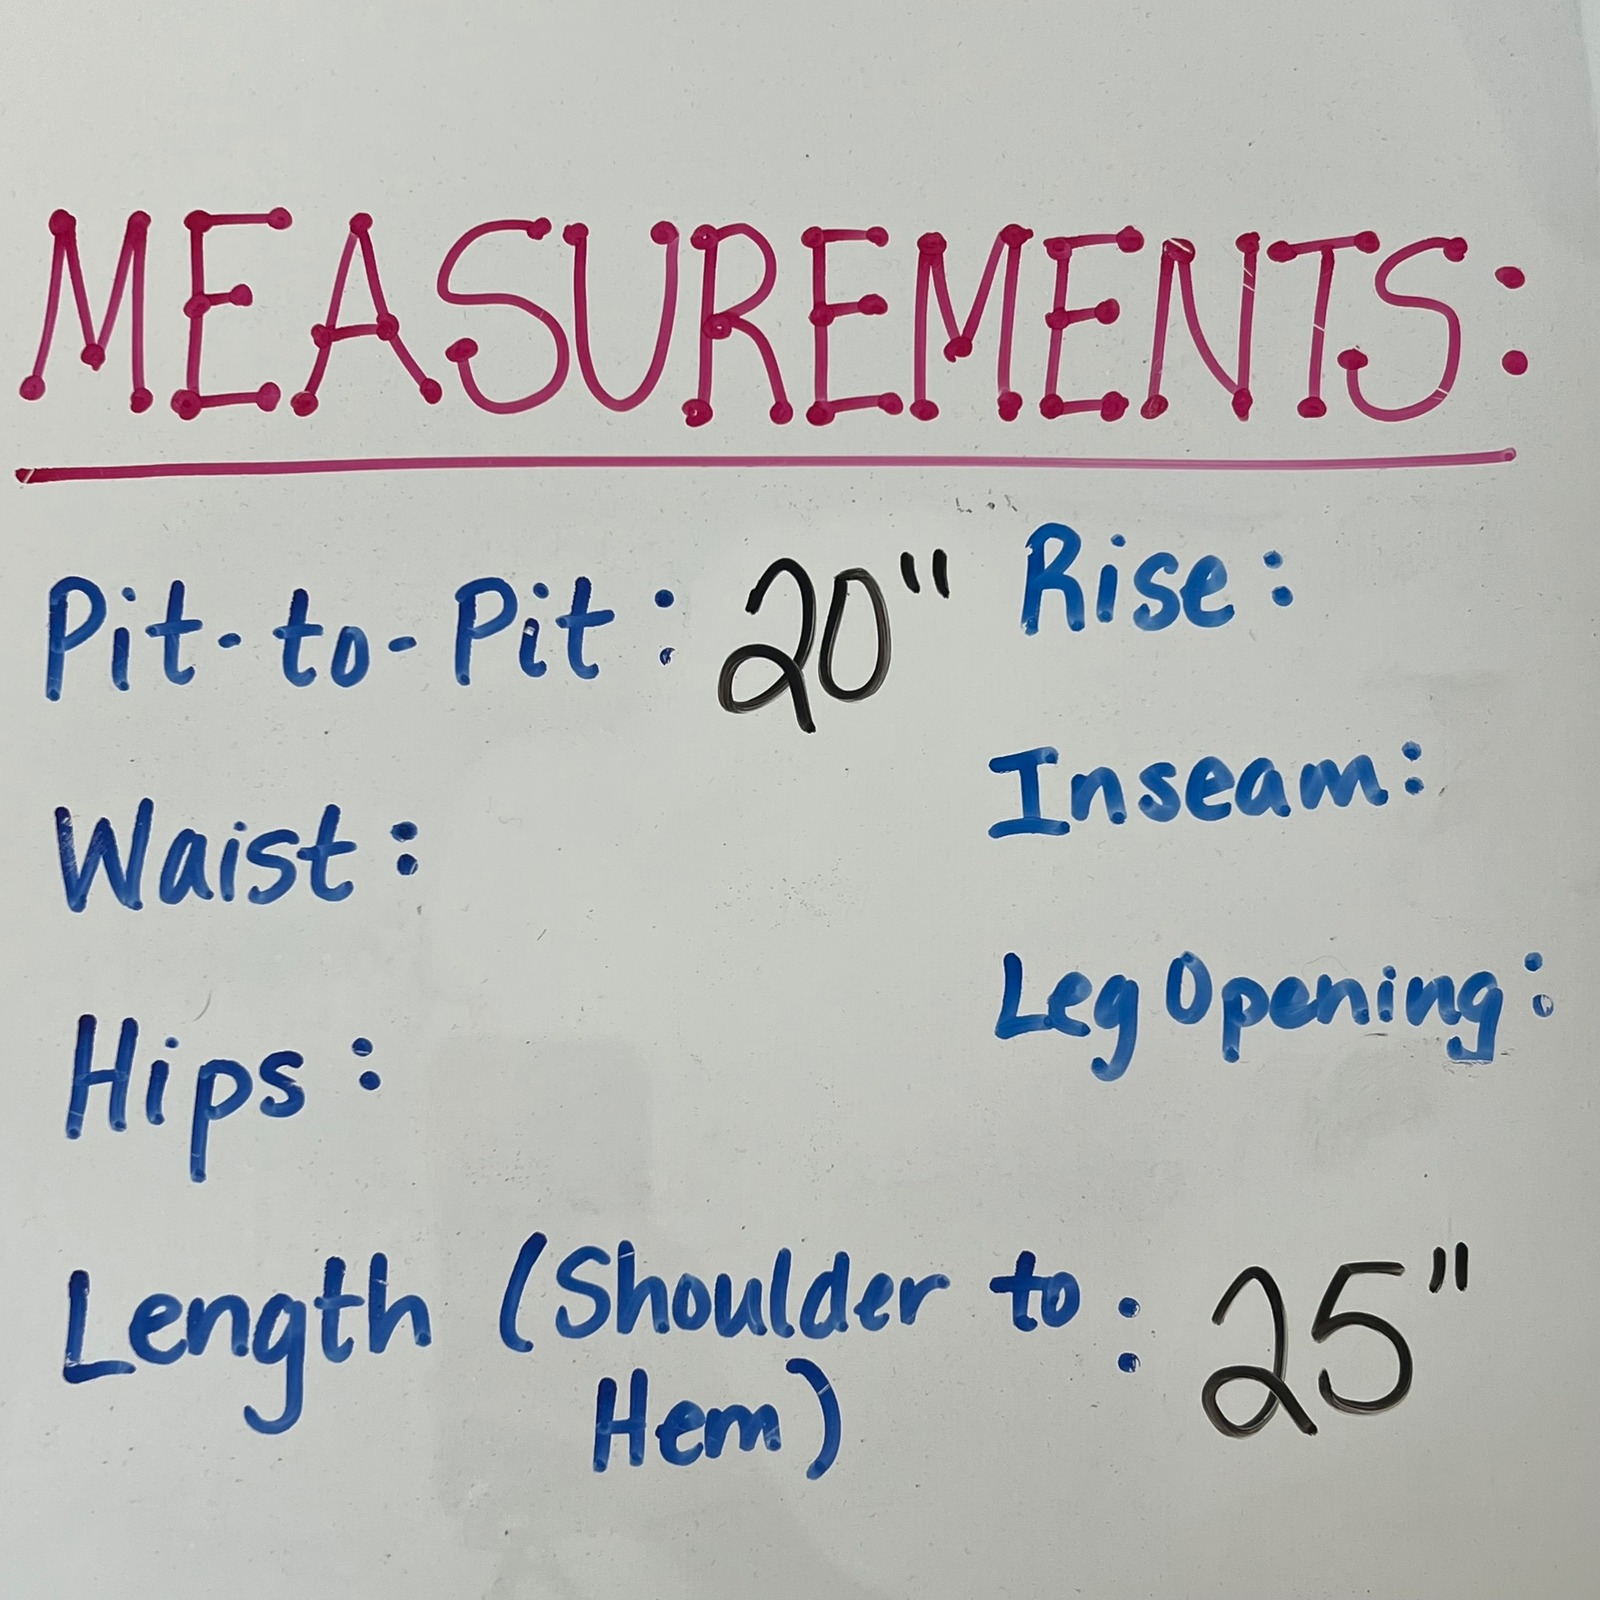 MEASUREMENTS:
Pit-to-Pit: 20"
Rise:
Waist:
Inseam:
Hips:
Leg Opening:
Length (Shoulder to : 25"
Hem)